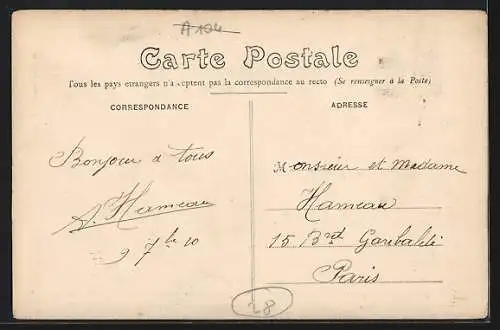 A104
Carte Postale
Tous les pays etrangers n'acceptent pas la correspondance au recto (Se renseigner à la Poste)
CORRESPONDANCE
ADRESSE
Bonjour a tous
A. Hameau
9 7bre 10
Monsieur et Madame
Hameau
15 Bard Garibaldi
Paris
28